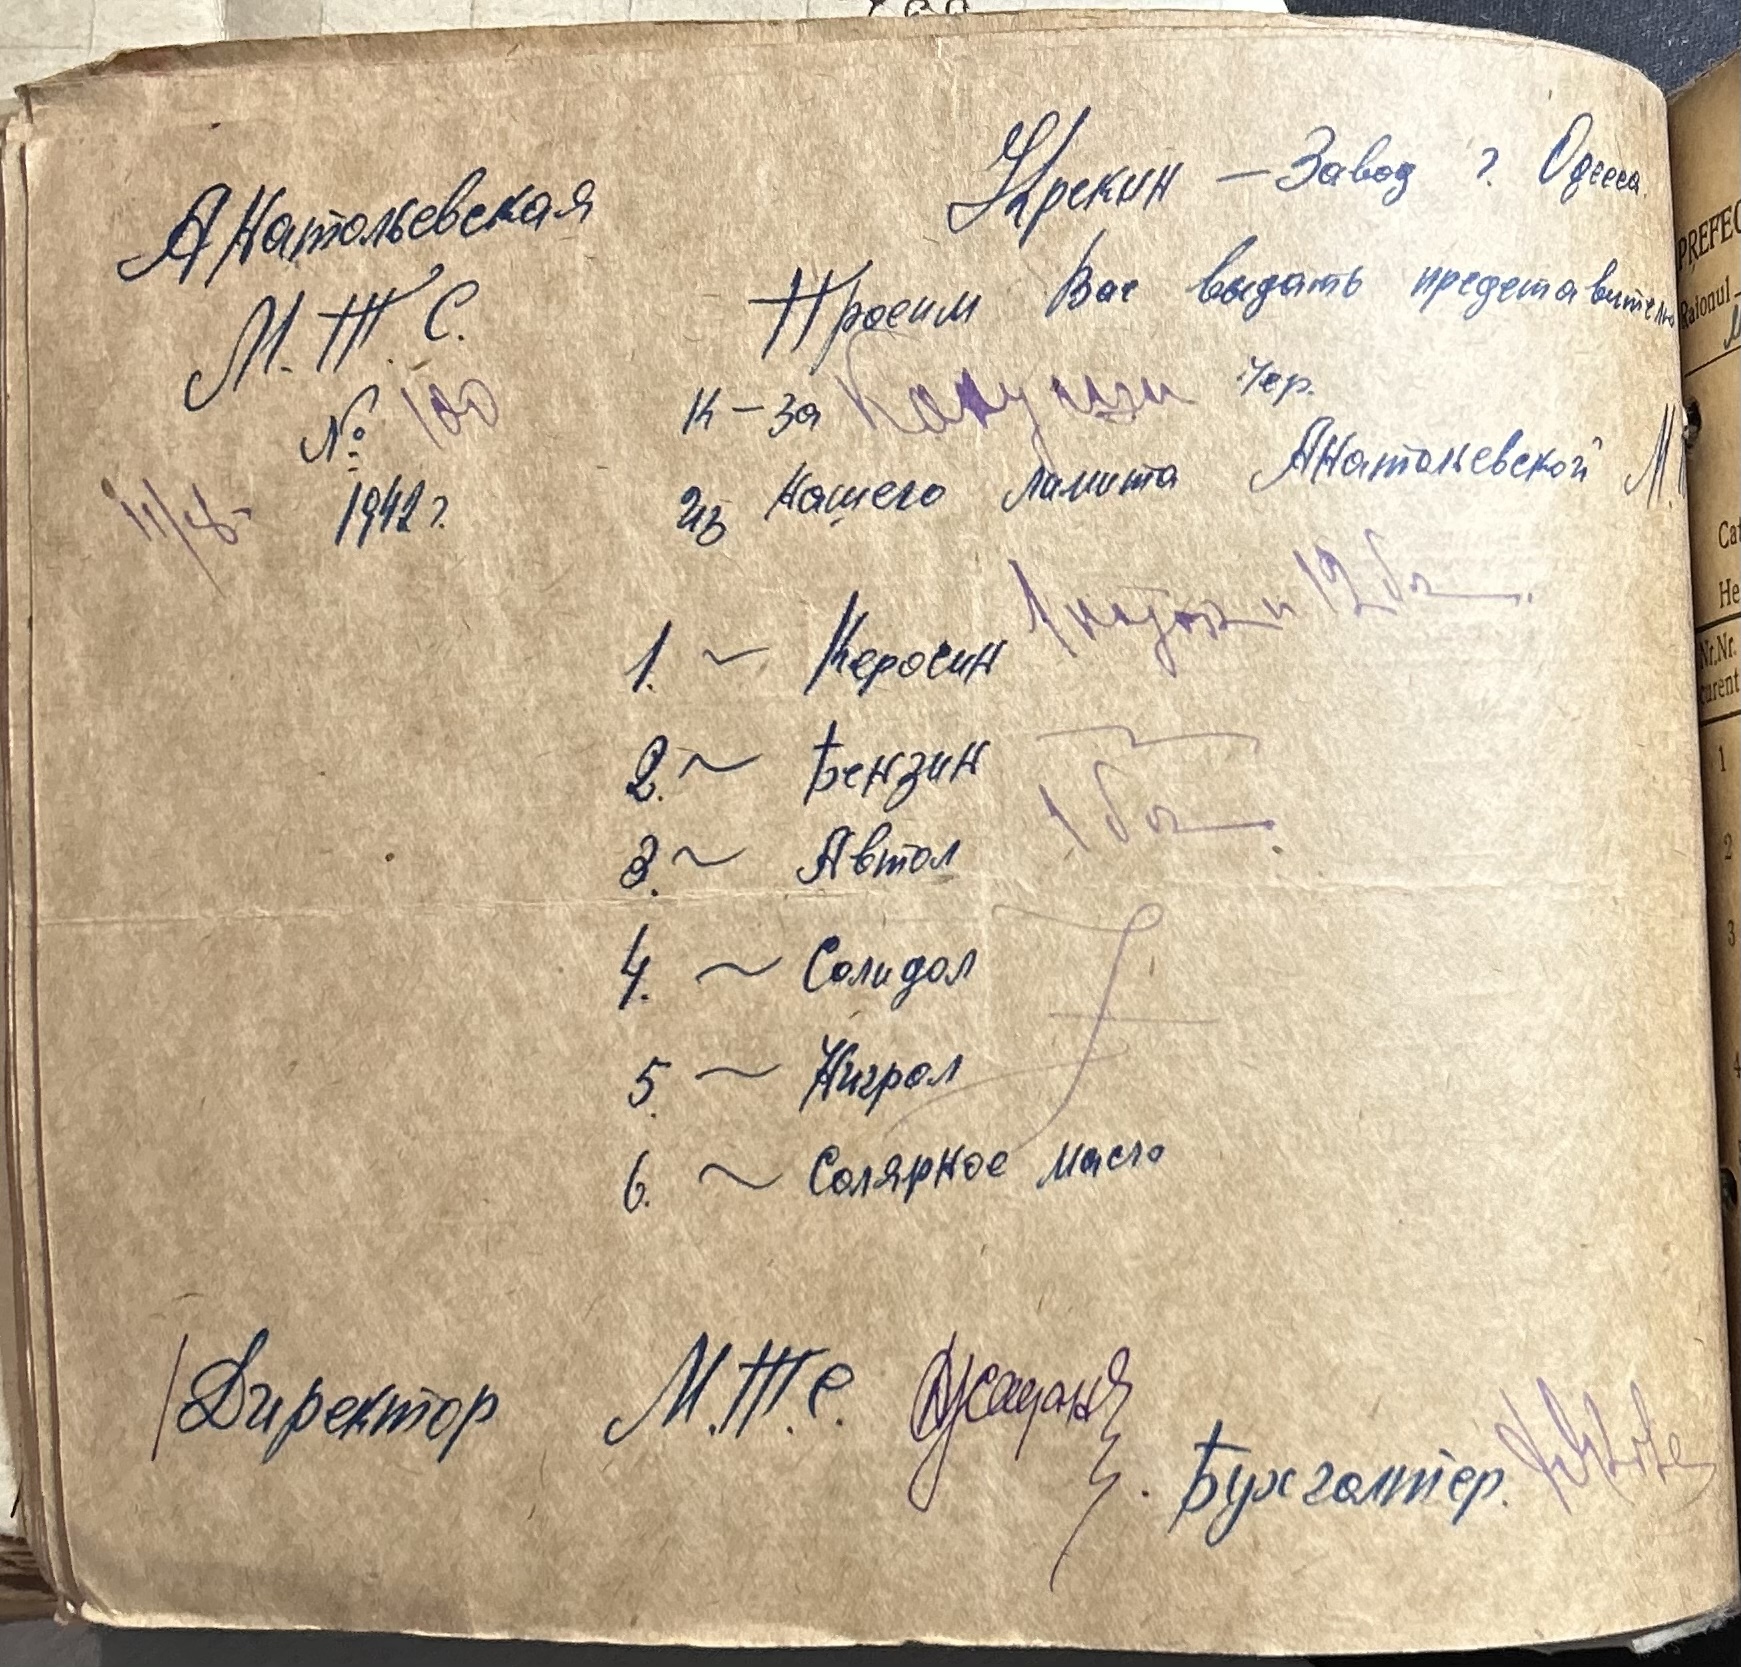 Анатольевская
М. Т. С.
№ 100
1942 г.
Крекин – Завод г. Одесса.
Просим Вас выдать представителю
к – за чер.
из нашего лимита Анатольевской М.
1. ~ Керосин
2. ~ Бензин
3. ~ Автол
4. ~ Солидол
5. ~ Нигрол
6. ~ Солярное масло
Директор М.Т.С.
Бухгалтер.
PREFEC
Raionul
Nr.Nr.
curent
1
2
3
4